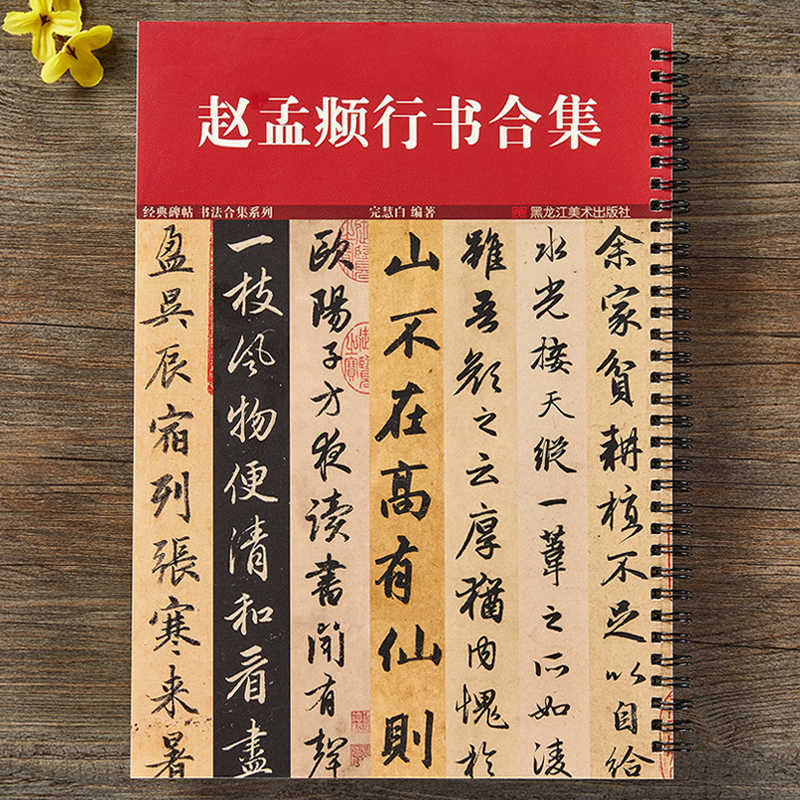 赵孟𫖯行书合集
经典碑帖 书法合集系列
完慧白 编著
黑龙江美术出版社
余家貧耕植不足以自給
水光接天縱一葦之所如凌
雖吾顏之云厚猶内愧於
山不在高有仙則
歐陽子方夜讀書聞有聲
一枝风物便清和看盡
盈昃辰宿列張寒来暑